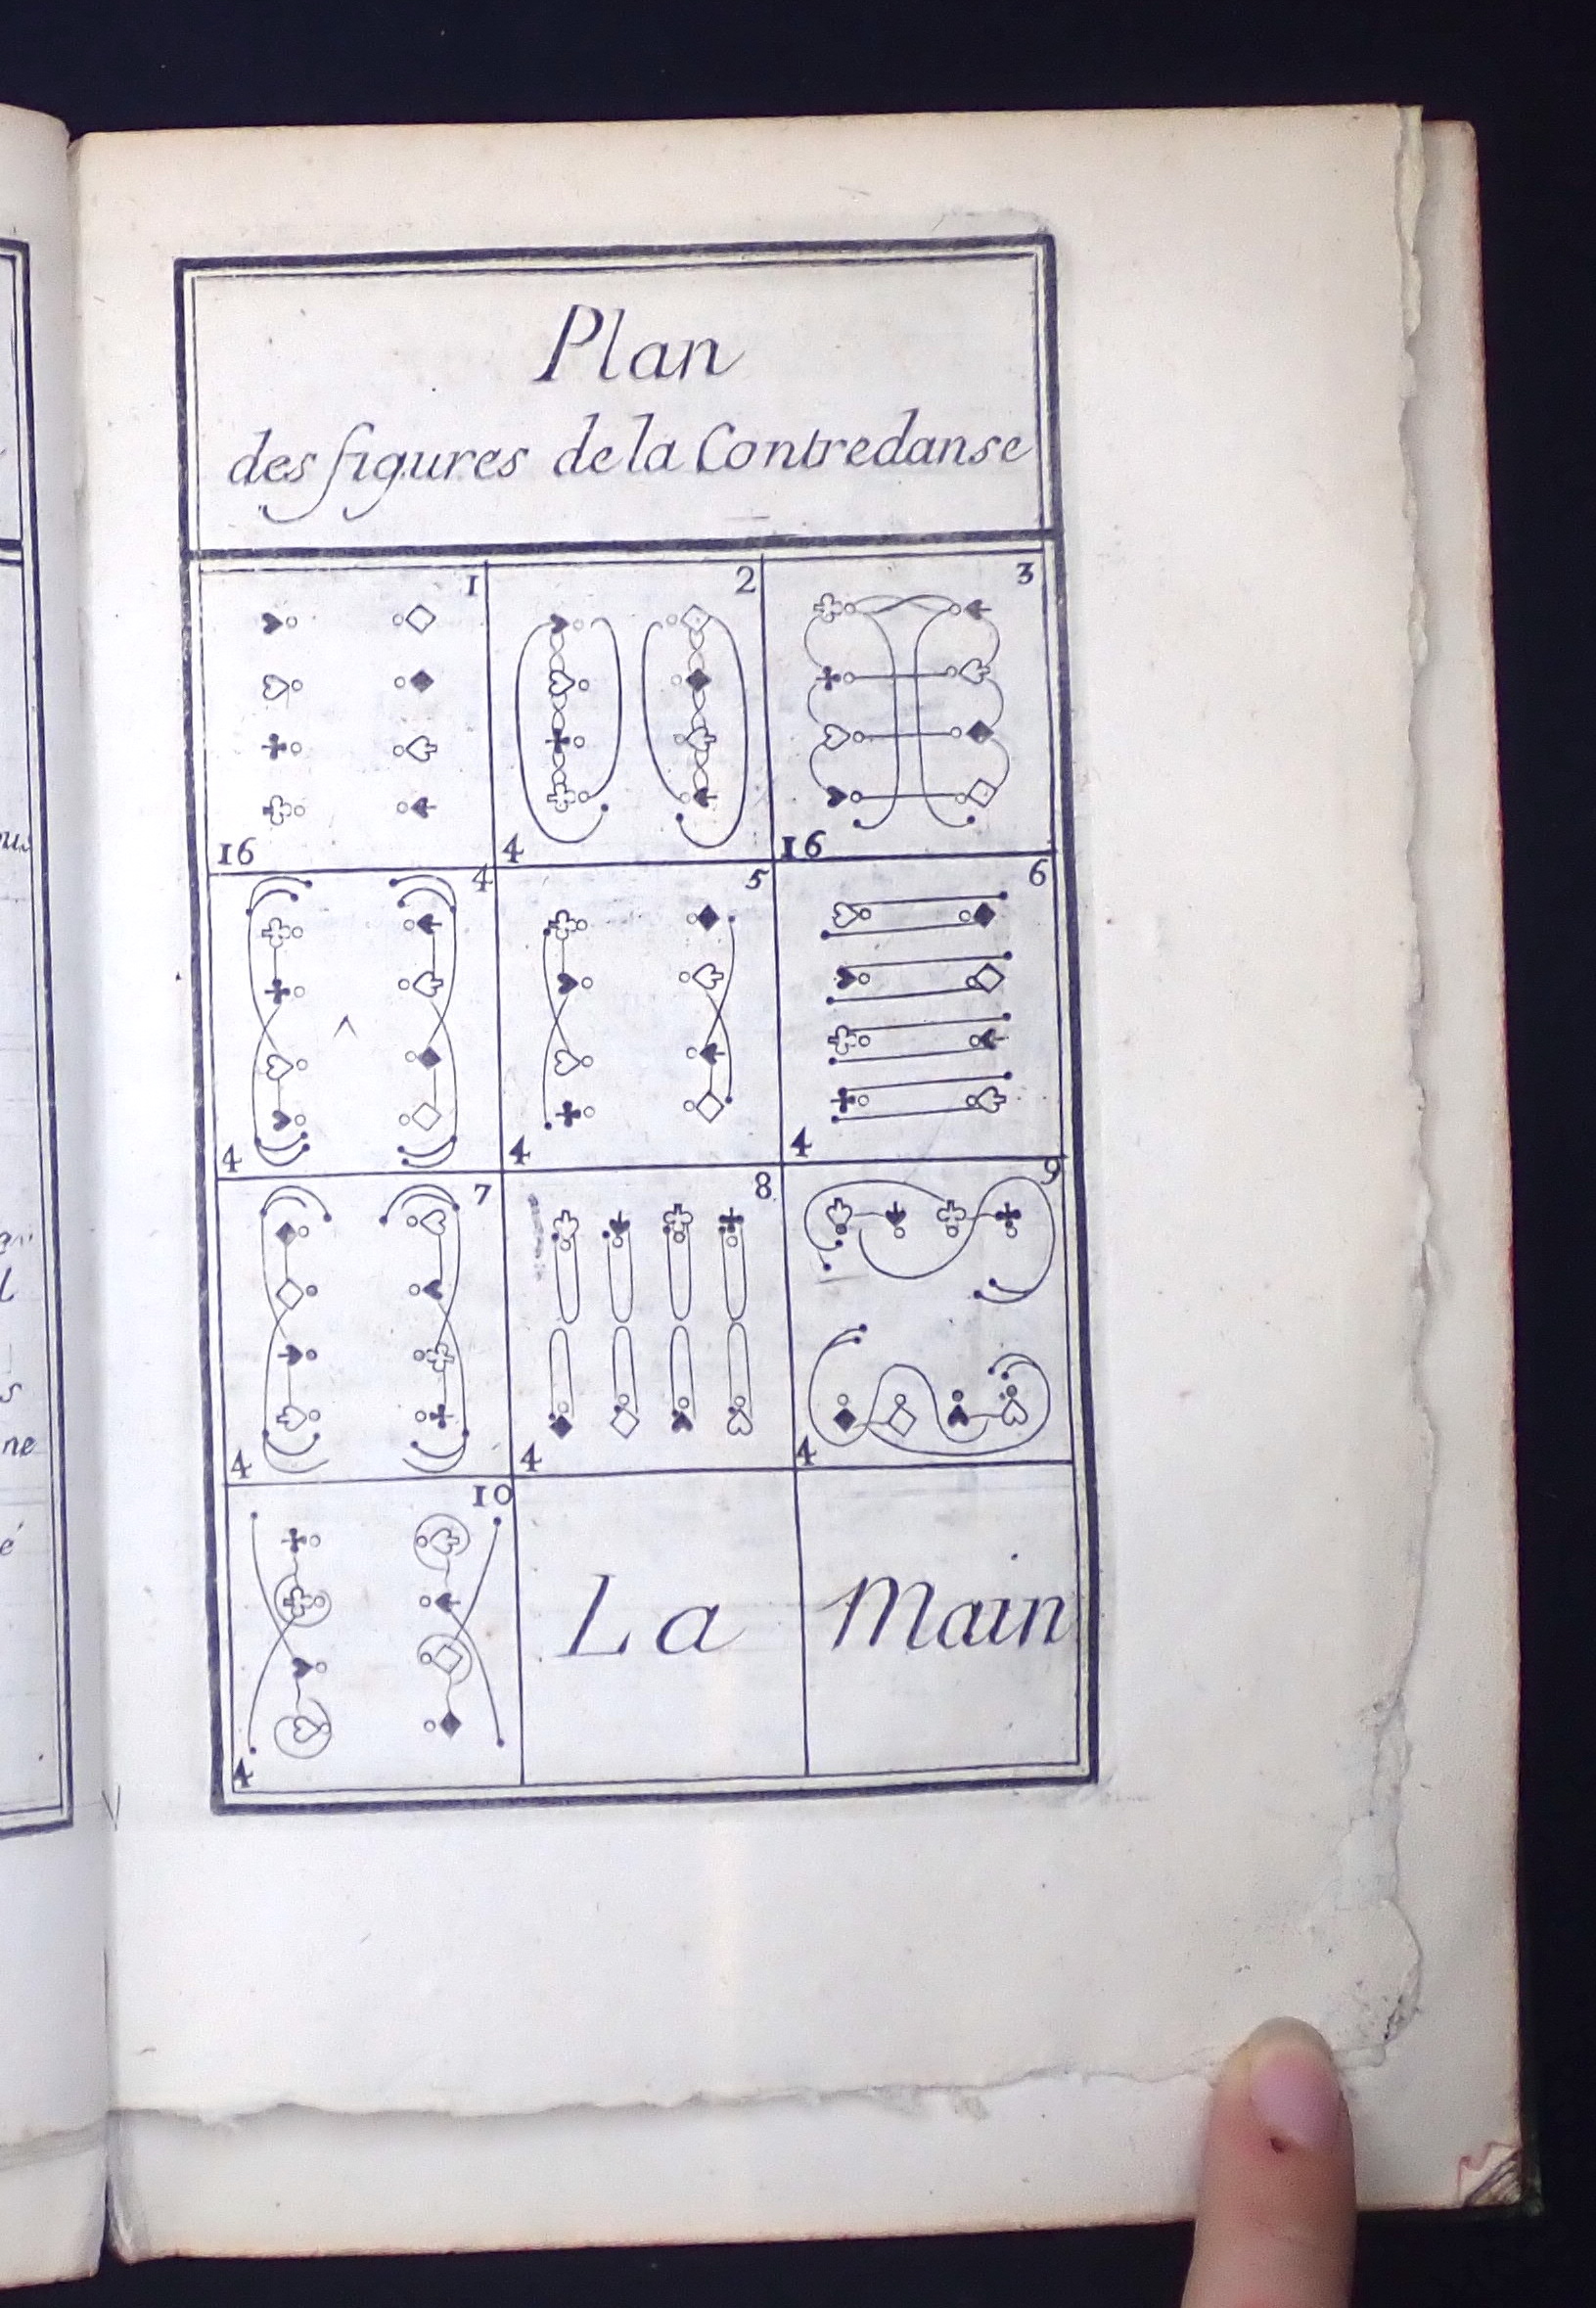 Plan
des figures de la Contredanse
1
16
2
4
3
16
4
4
5
4
6
4
7
4
8
4
9
4
10
4
La Main